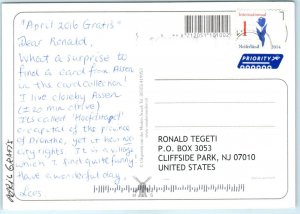 "April 2016 Gratis"
Dear Ronald,
What a surprise to
find a card from Assen
in the card collection!
I live closeby Assen
(± 20 min drive)
It's called "Hoofdstepel"
capital of the province
of Drenthe, yet it has no
city rights. It is a village
which I find quite funny!
Have a wonderful day.
Lees
APRIL GRATIS
Internationaal
1
Nederland 2014
PRIORITY
RONALD TEGETI
P.O. BOX 3053
CLIFFSIDE PARK, NJ 07010
UNITED STATES